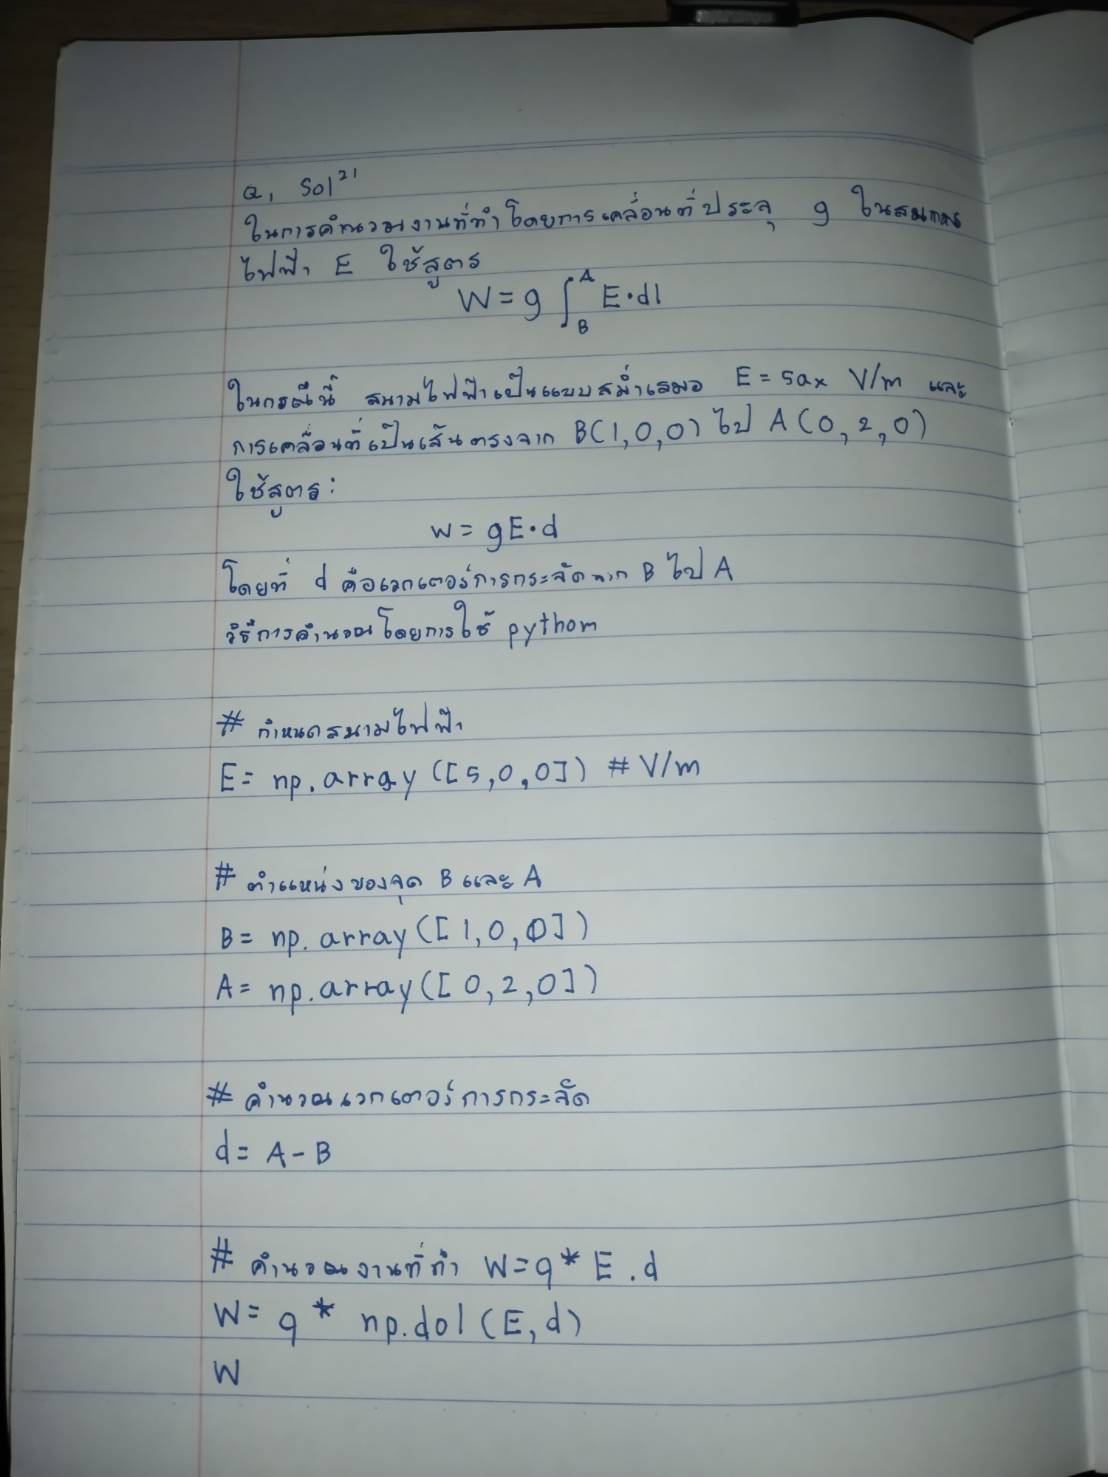 Q1 Sol21
ในการคำนวณงานที่ทำโดยการเคลื่อนที่ประจุ q ในสนาม
ไฟฟ้า E ใช้สูตร
W = q ∫_B^A E·dl
ในกรณีนี้ สนามไฟฟ้าเป็นแบบสม่ำเสมอ E = 5ax V/m และ
การเคลื่อนที่เป็นเส้นตรงจาก B(1,0,0) ไป A(0,2,0)
ใช้สูตร:
W = qE·d
โดยที่ d คือเวกเตอร์การกระจัดจาก B ไป A
วิธีการคำนวณโดยการใช้ python
# กำหนดสนามไฟฟ้า
E = np.array([5,0,0]) # V/m
# ตำแหน่งของจุด B และ A
B = np.array([1,0,0])
A = np.array([0,2,0])
# คำนวณเวกเตอร์การกระจัด
d = A - B
# คำนวณงานที่ทำ W=q*E.d
W = q * np.dot(E,d)
W